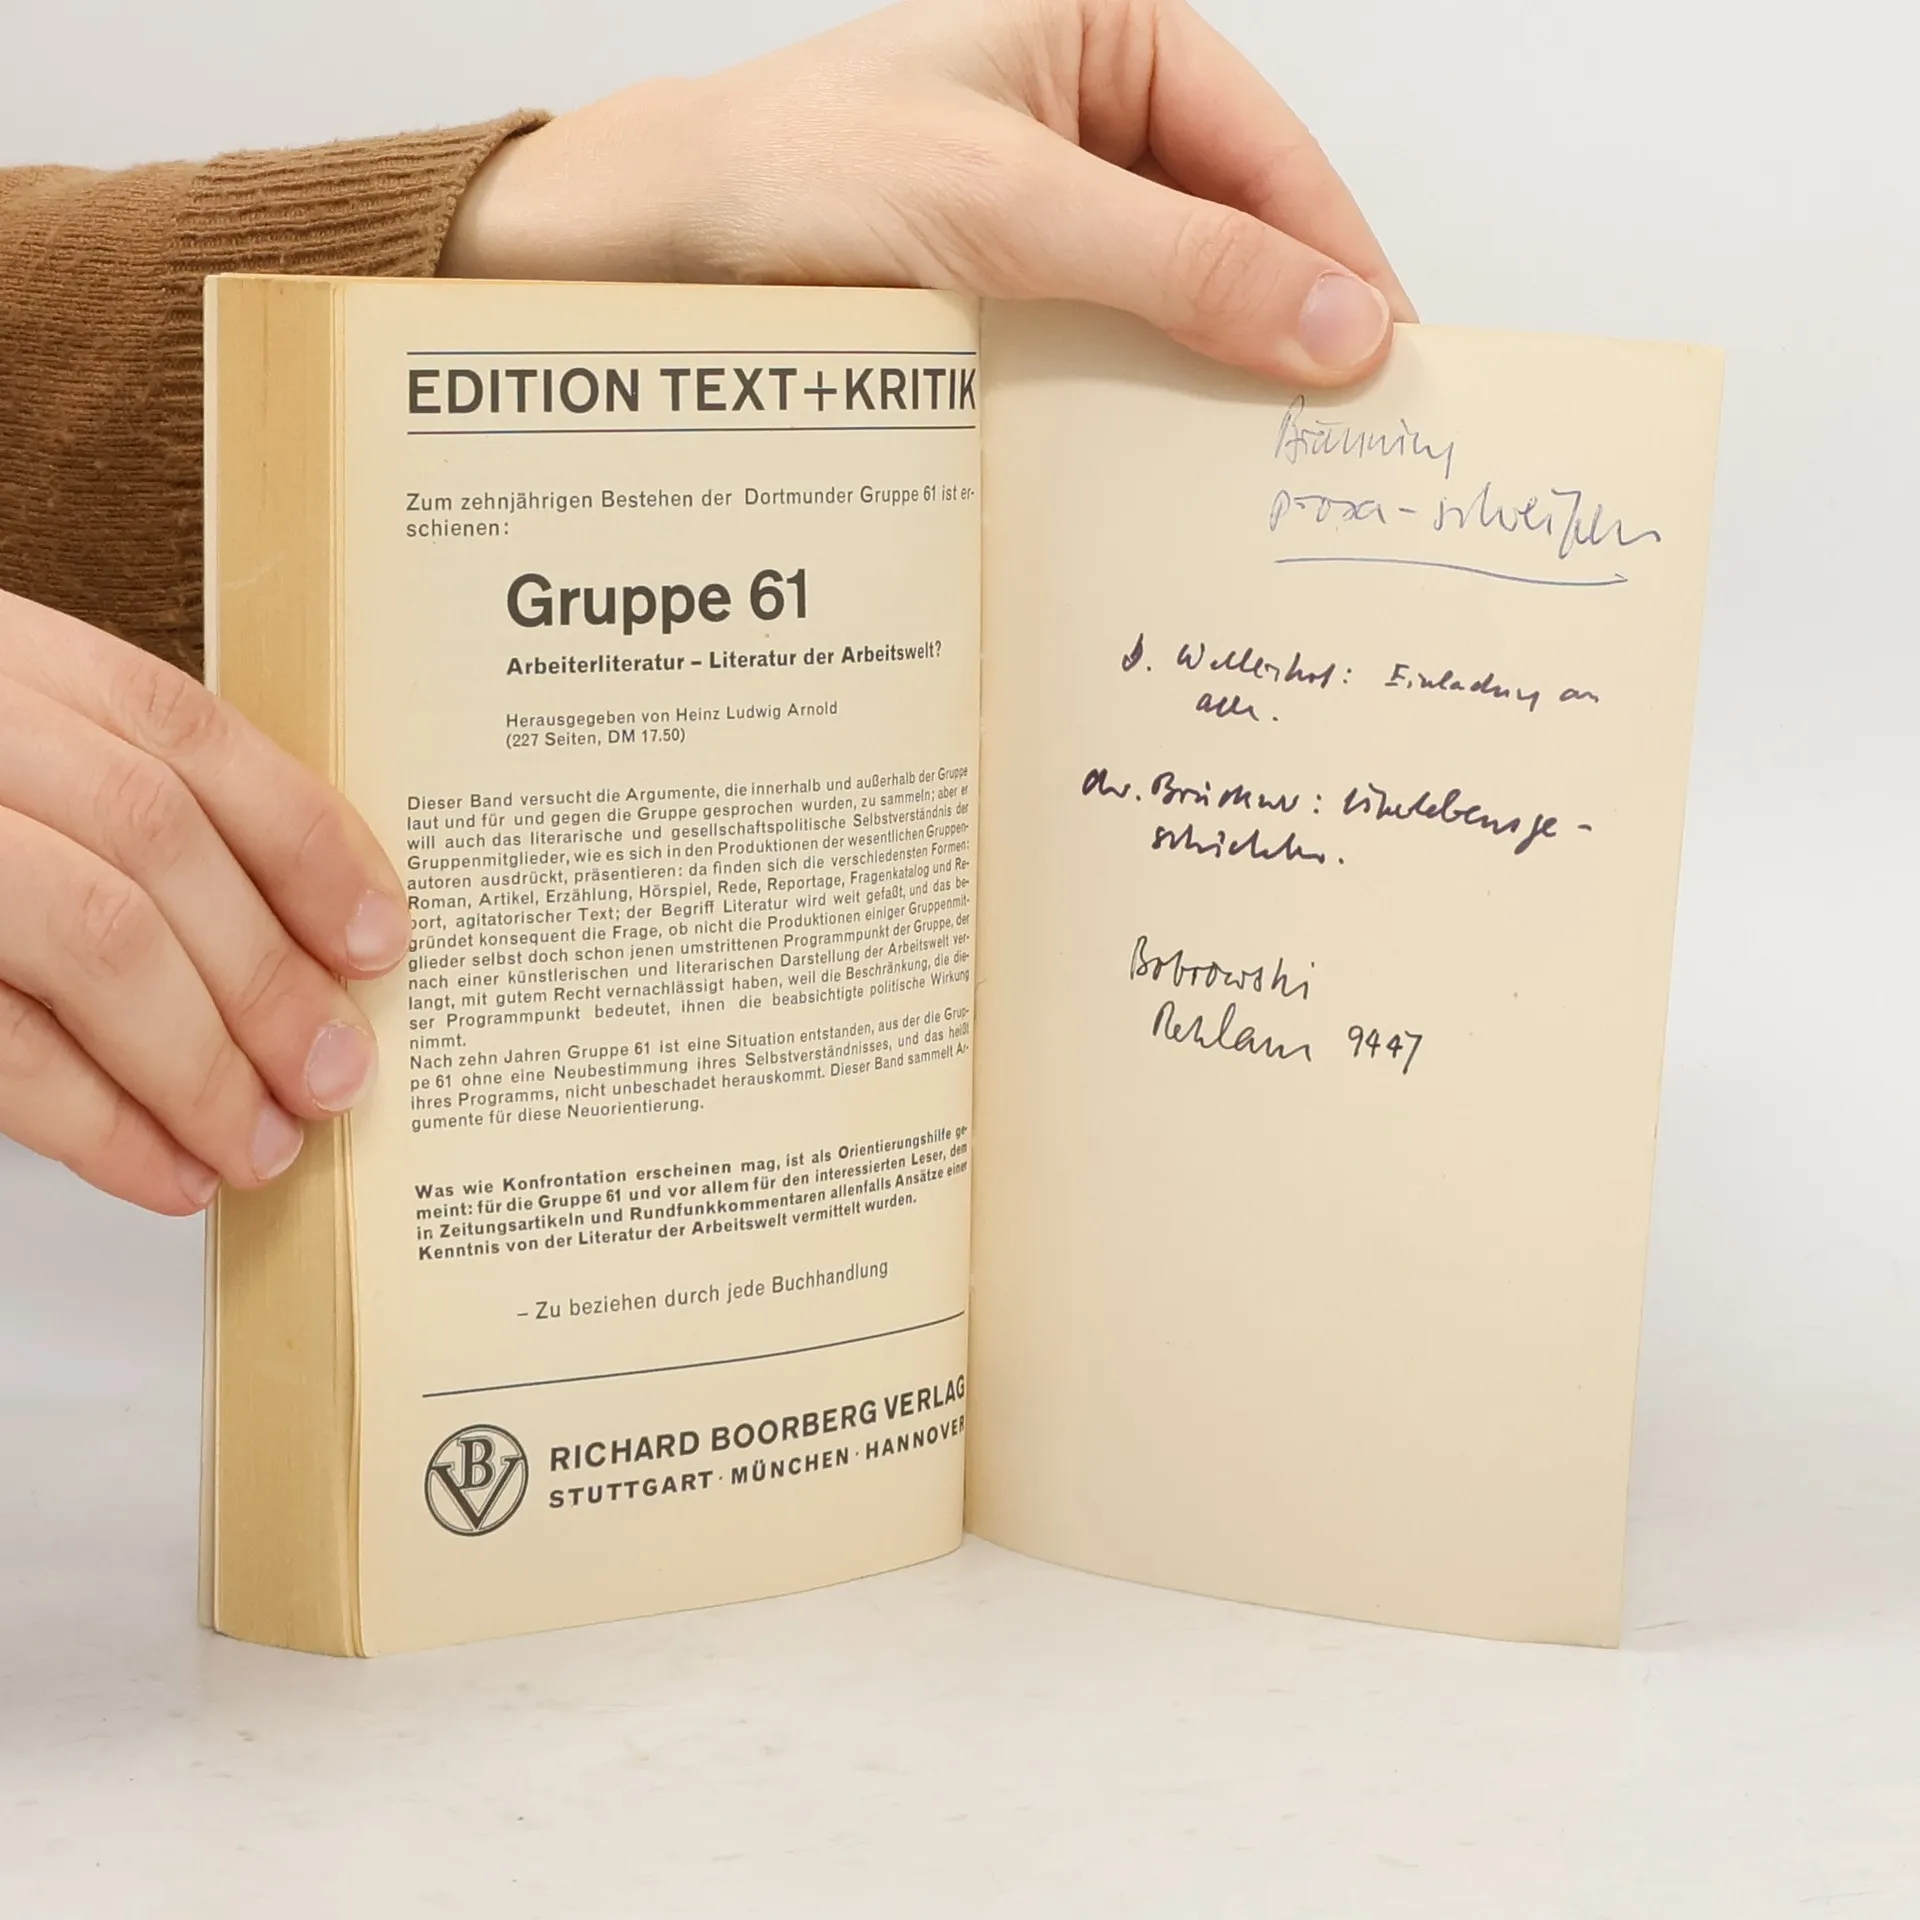 EDITION TEXT+KRITIK
Zum zehnjährigen Bestehen der Dortmunder Gruppe 61 ist er-
schienen:
Gruppe 61
Arbeiterliteratur – Literatur der Arbeitswelt?
Herausgegeben von Heinz Ludwig Arnold
(227 Seiten, DM 17.50)
Dieser Band versucht die Argumente, die innerhalb und außerhalb der Gruppe
laut und für und gegen die Gruppe gesprochen wurden, zu sammeln; aber er
will auch das literarische und gesellschaftspolitische Selbstverständnis der
Gruppenmitglieder, wie es sich in den Produktionen der wesentlichen Gruppen-
autoren ausdrückt, präsentieren: da finden sich die verschiedensten Formen:
Roman, Artikel, Erzählung, Hörspiel, Rede, Reportage, Fragenkatalog und Re-
port, agitatorischer Text; der Begriff Literatur wird weit gefaßt, und das be-
gründet konsequent die Frage, ob nicht die Produktionen einiger Gruppenmit-
glieder selbst doch schon jenen umstrittenen Programmpunkt der Gruppe, der
nach einer künstlerischen und literarischen Darstellung der Arbeitswelt ver-
langt, mit gutem Recht vernachlässigt haben, weil die Beschränkung, die die-
ser Programmpunkt bedeutet, ihnen die beabsichtigte politische Wirkung
nimmt.
Nach zehn Jahren Gruppe 61 ist eine Situation entstanden, aus der die Grup-
pe 61 ohne eine Neubestimmung ihres Selbstverständnisses, und das heißt
ihres Programms, nicht unbeschadet herauskommt. Dieser Band sammelt Ar-
gumente für diese Neuorientierung.
Was wie Konfrontation erscheinen mag, ist als Orientierungshilfe ge-
meint: für die Gruppe 61 und vor allem für den interessierten Leser, dem
in Zeitungsartikeln und Rundfunkkommentaren allenfalls Ansätze einer
Kenntnis von der Literatur der Arbeitswelt vermittelt wurden.
– Zu beziehen durch jede Buchhandlung
BV
RICHARD BOORBERG VERLAG
STUTTGART · MÜNCHEN · HANNOVER
prosa-
D. Wellershof: Einladung an
alle.
Chr. Brückner: Überlebensge-
schichten.
Bobrowski
Reklam 9447